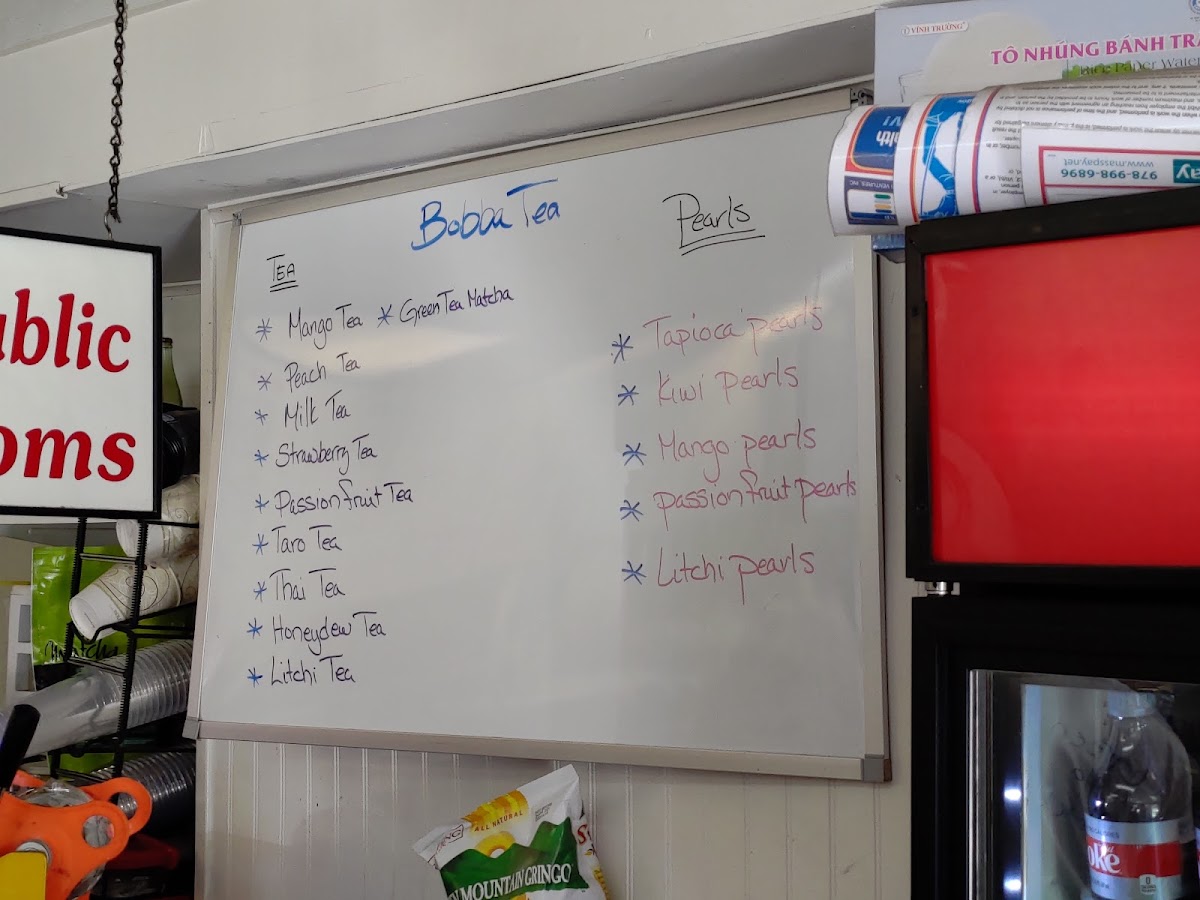 VĨNH TRƯỜNG
TÔ NHÚNG BÁNH TRÁ
Rice Paper Water
978-998-6896
www.masspay.net
ay
Bobba Tea
Pearls
TEA
* Mango Tea * Green Tea Matcha
* Peach Tea
* Milk Tea
* Strawberry Tea
* Passion fruit Tea
* Taro Tea
* Thai Tea
* Honeydew Tea
* Litchi Tea
* Tapioca pearls
* Kiwi pearls
* Mango pearls
* passion fruit pearls
* Litchi pearls
ublic
oms
ALL NATURAL
N MOUNTAIN GRINGO
oke